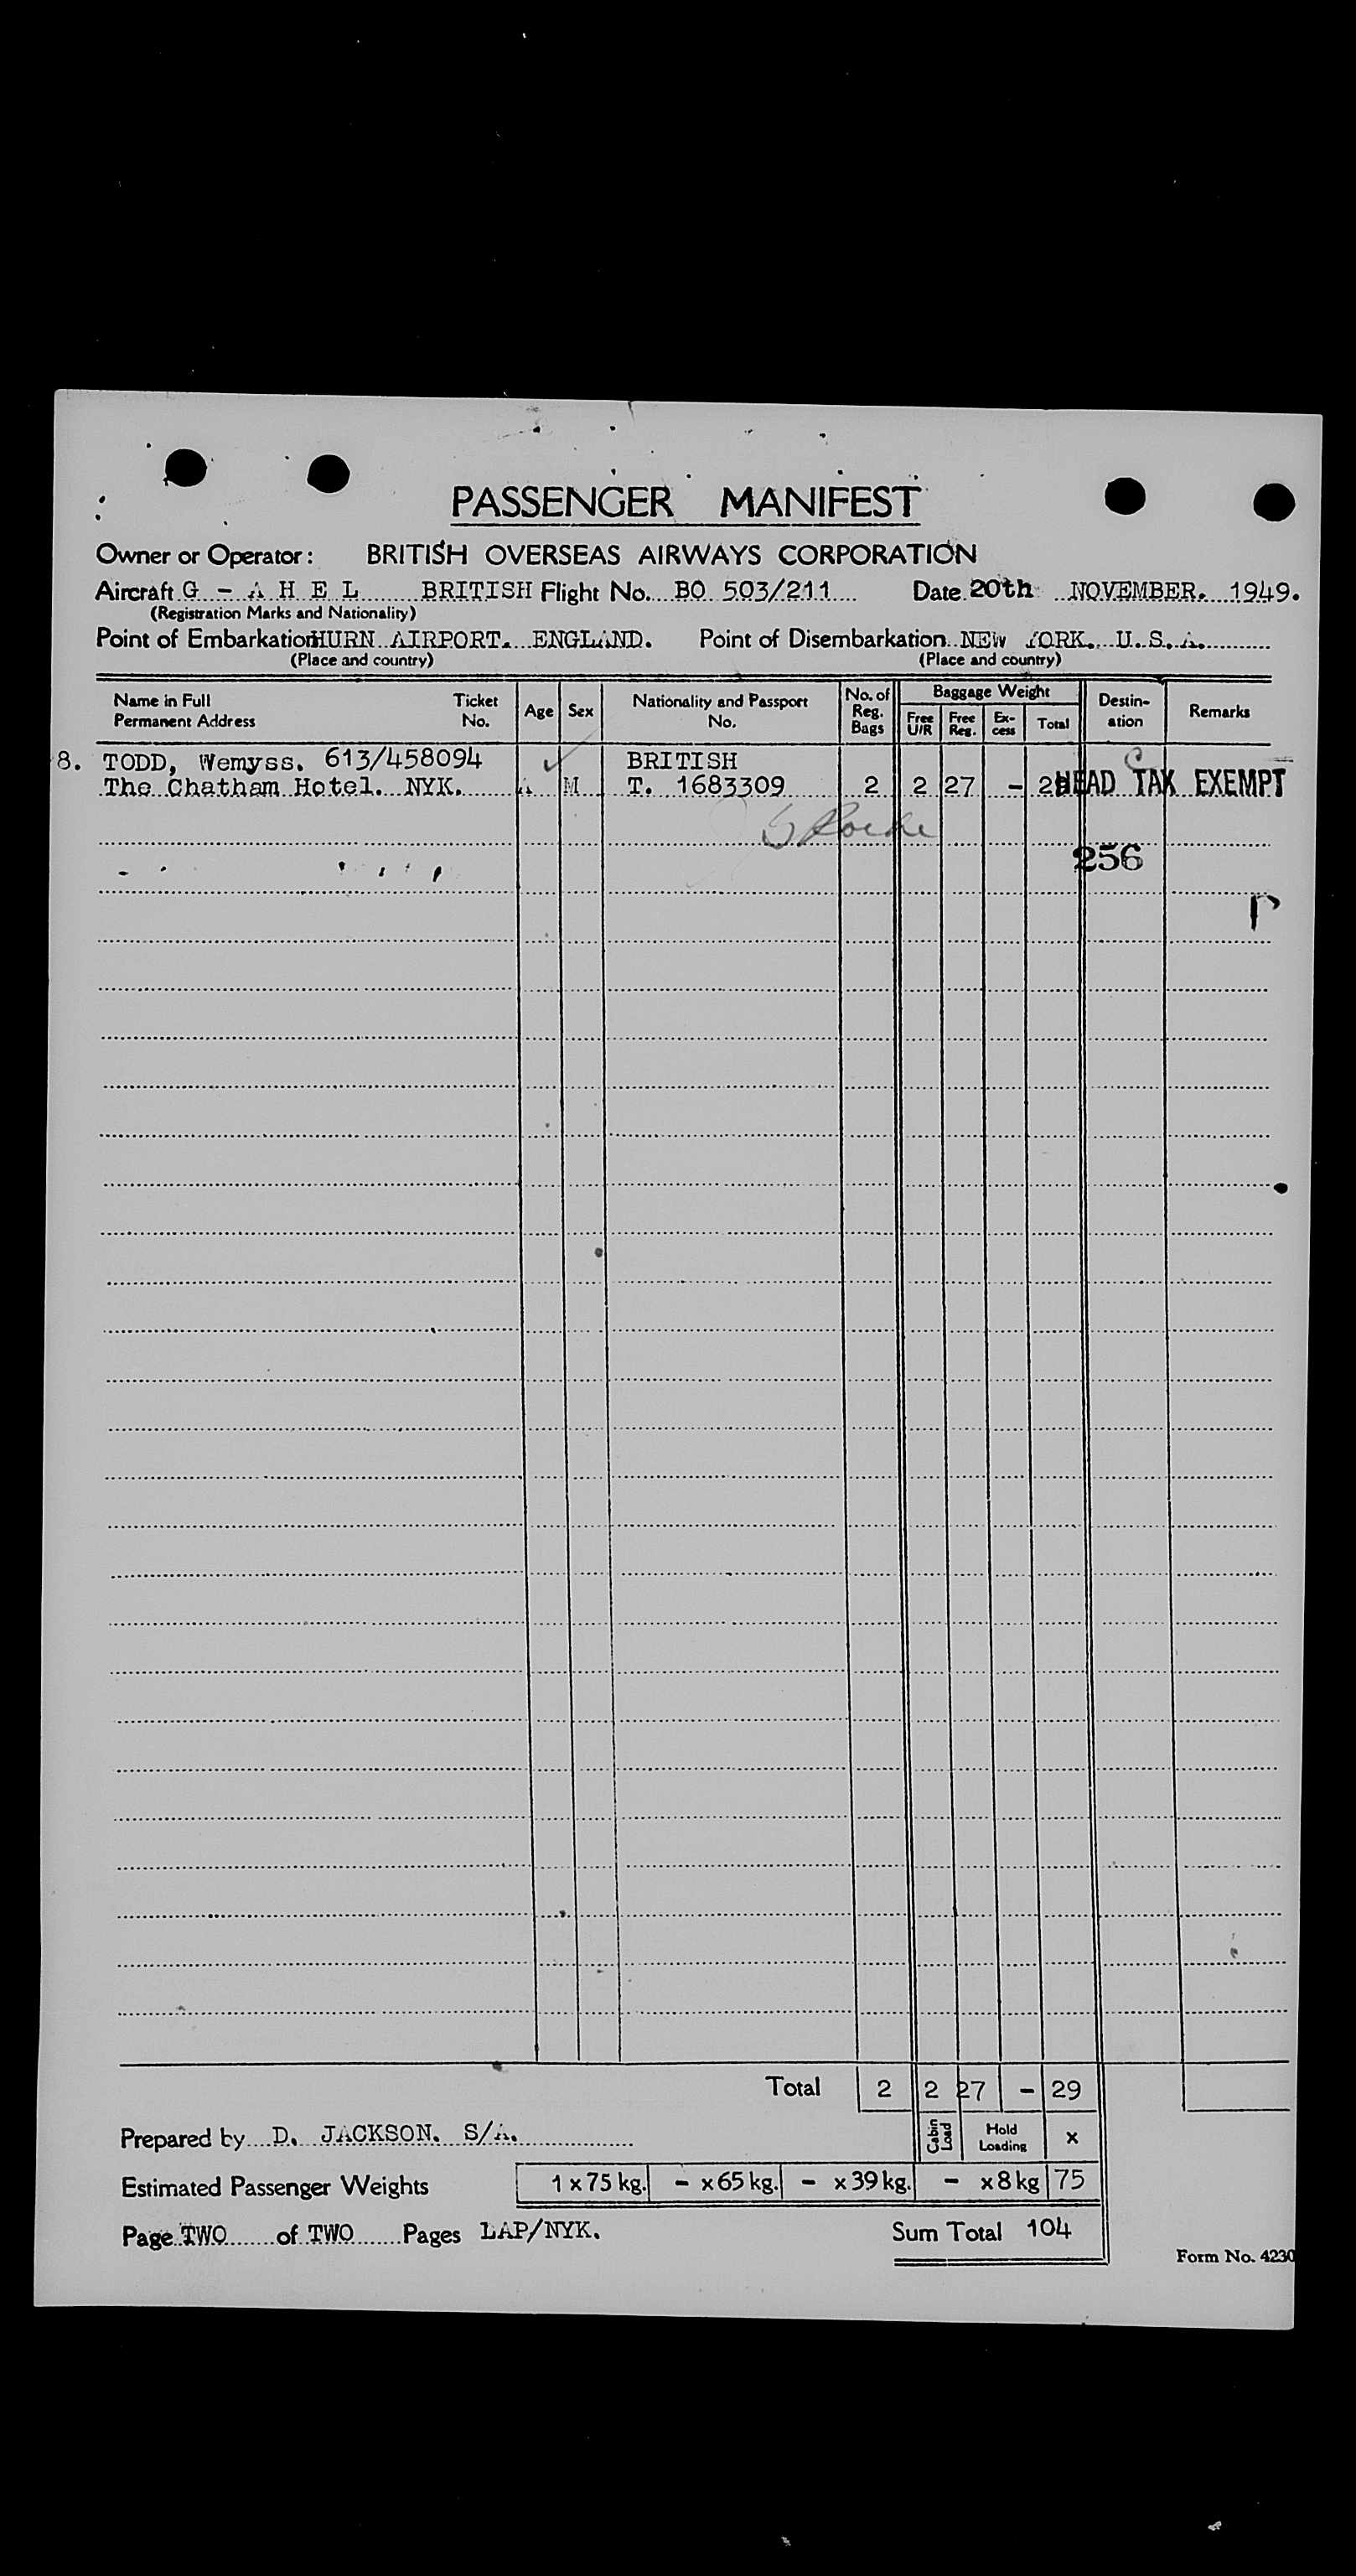 PASSENGER MANIFEST
Owner or Operator: BRITISH OVERSEAS AIRWAYS CORPORATION
Aircraft G - A H E L BRITISH Flight No. BO 503/211 Date 20th NOVEMBER. 1949.
(Registration Marks and Nationality)
Point of Embarkation HURN AIRPORT. ENGLAND. Point of Disembarkation NEW YORK. U.S.A.
(Place and country) (Place and country)
Name in Full Permanent Address Ticket No. Age Sex Nationality and Passport No. No. of Reg. Bags Baggage Weight Free U/R Free Reg. Ex-cess Total Destin-ation Remarks
8. TODD, Wemyss. 613/458094 BRITISH
The Chatham Hotel. NYK. A M T. 1683309 2 2 27 - HEAD TAX EXEMPT
256
Total 2 2 27 - 29
Prepared by D. JACKSON. S/A. Cabin Load Hold Loading x
Estimated Passenger Weights 1 x 75 kg. - x 65 kg. - x 39 kg. - x 8 kg 75
Page TWO of TWO Pages LAP/NYK. Sum Total 104
Form No. 4230